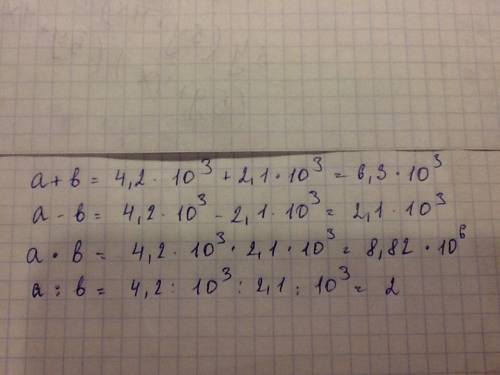 a + b = 4,2 · 10³ + 2,1 · 10³ = 6,3 · 10³
a - b = 4,2 · 10³ - 2,1 · 10³ = 2,1 · 10³
a · b = 4,2 · 10³ · 2,1 · 10³ = 8,82 · 10⁶
a : b = 4,2 : 10³ : 2,1 : 10³ = 2